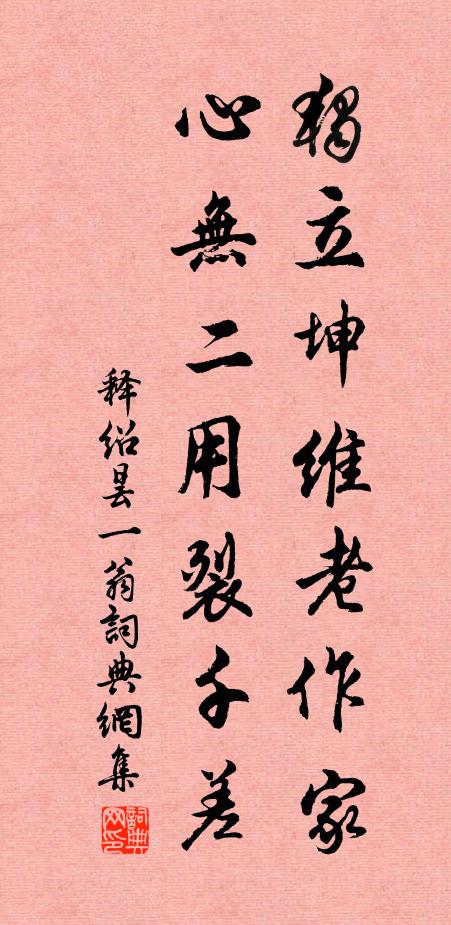 獨立坤維老作家
心無二用裂千差
释绍昙一翁詞典網集
詞典網印